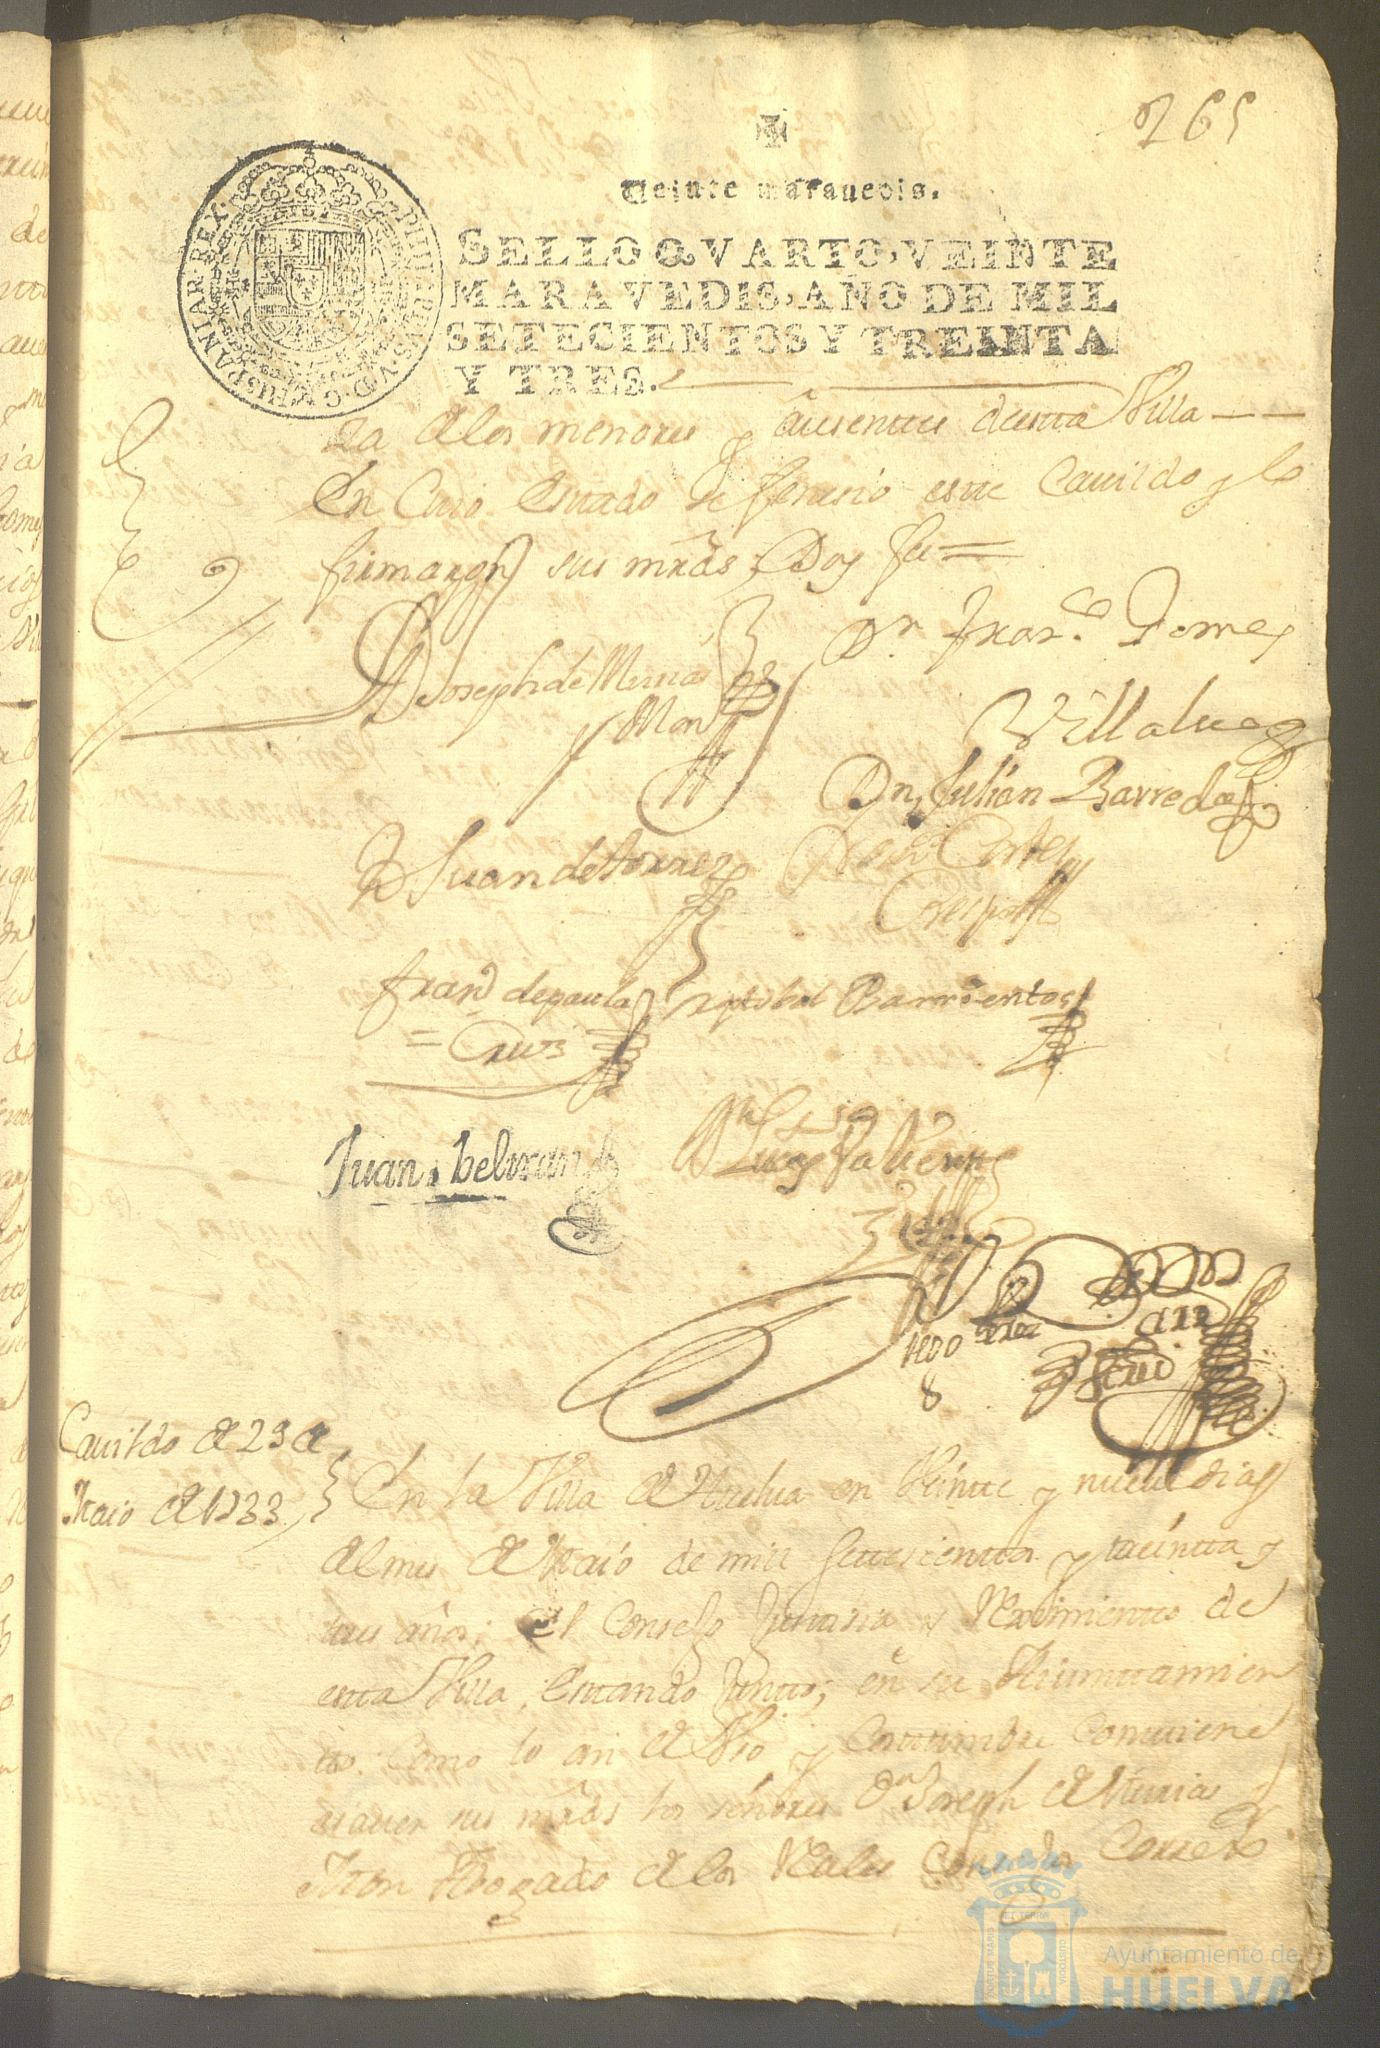 265
Veinte maravedis.
SELLO QVARTO, VEINTE
MARAVEDIS, AÑO DE MIL
SETECIENTOS Y TREINTA
Y TRES.
PHILIPPUS V D G HISPANIAR REX
de los menores y ausentes desta Villa
En Cuio estado se fenesio este Cavildo y lo
firmaron sus mrds Doy fee
Dn Joseph de
y Mon
Dr Franco Gomez
Villalua
Dn Julián Barreda
Dn Juan de torrez
Cortes
Crespo
Franco de paula
Cruz
xptobal Barrientos
Juan beltran
Lucas Valiente
Cavildo de 29 de
Maio de 1733
En la Villa de Huelva en Veinte y nueve dias
del mes de Maio de mill setesientos y treinta y
tres años; el Consejo Justisia y Reximiento de
esta Villa, estando juntos; en su Aiuntamien
to como lo an de Uso y Costumbre Conviene
asaver sus mrds los señores Dn Joseph de
Mon Abogado de los Reales Consejos Correxor
Ayuntamiento de
HUELVA